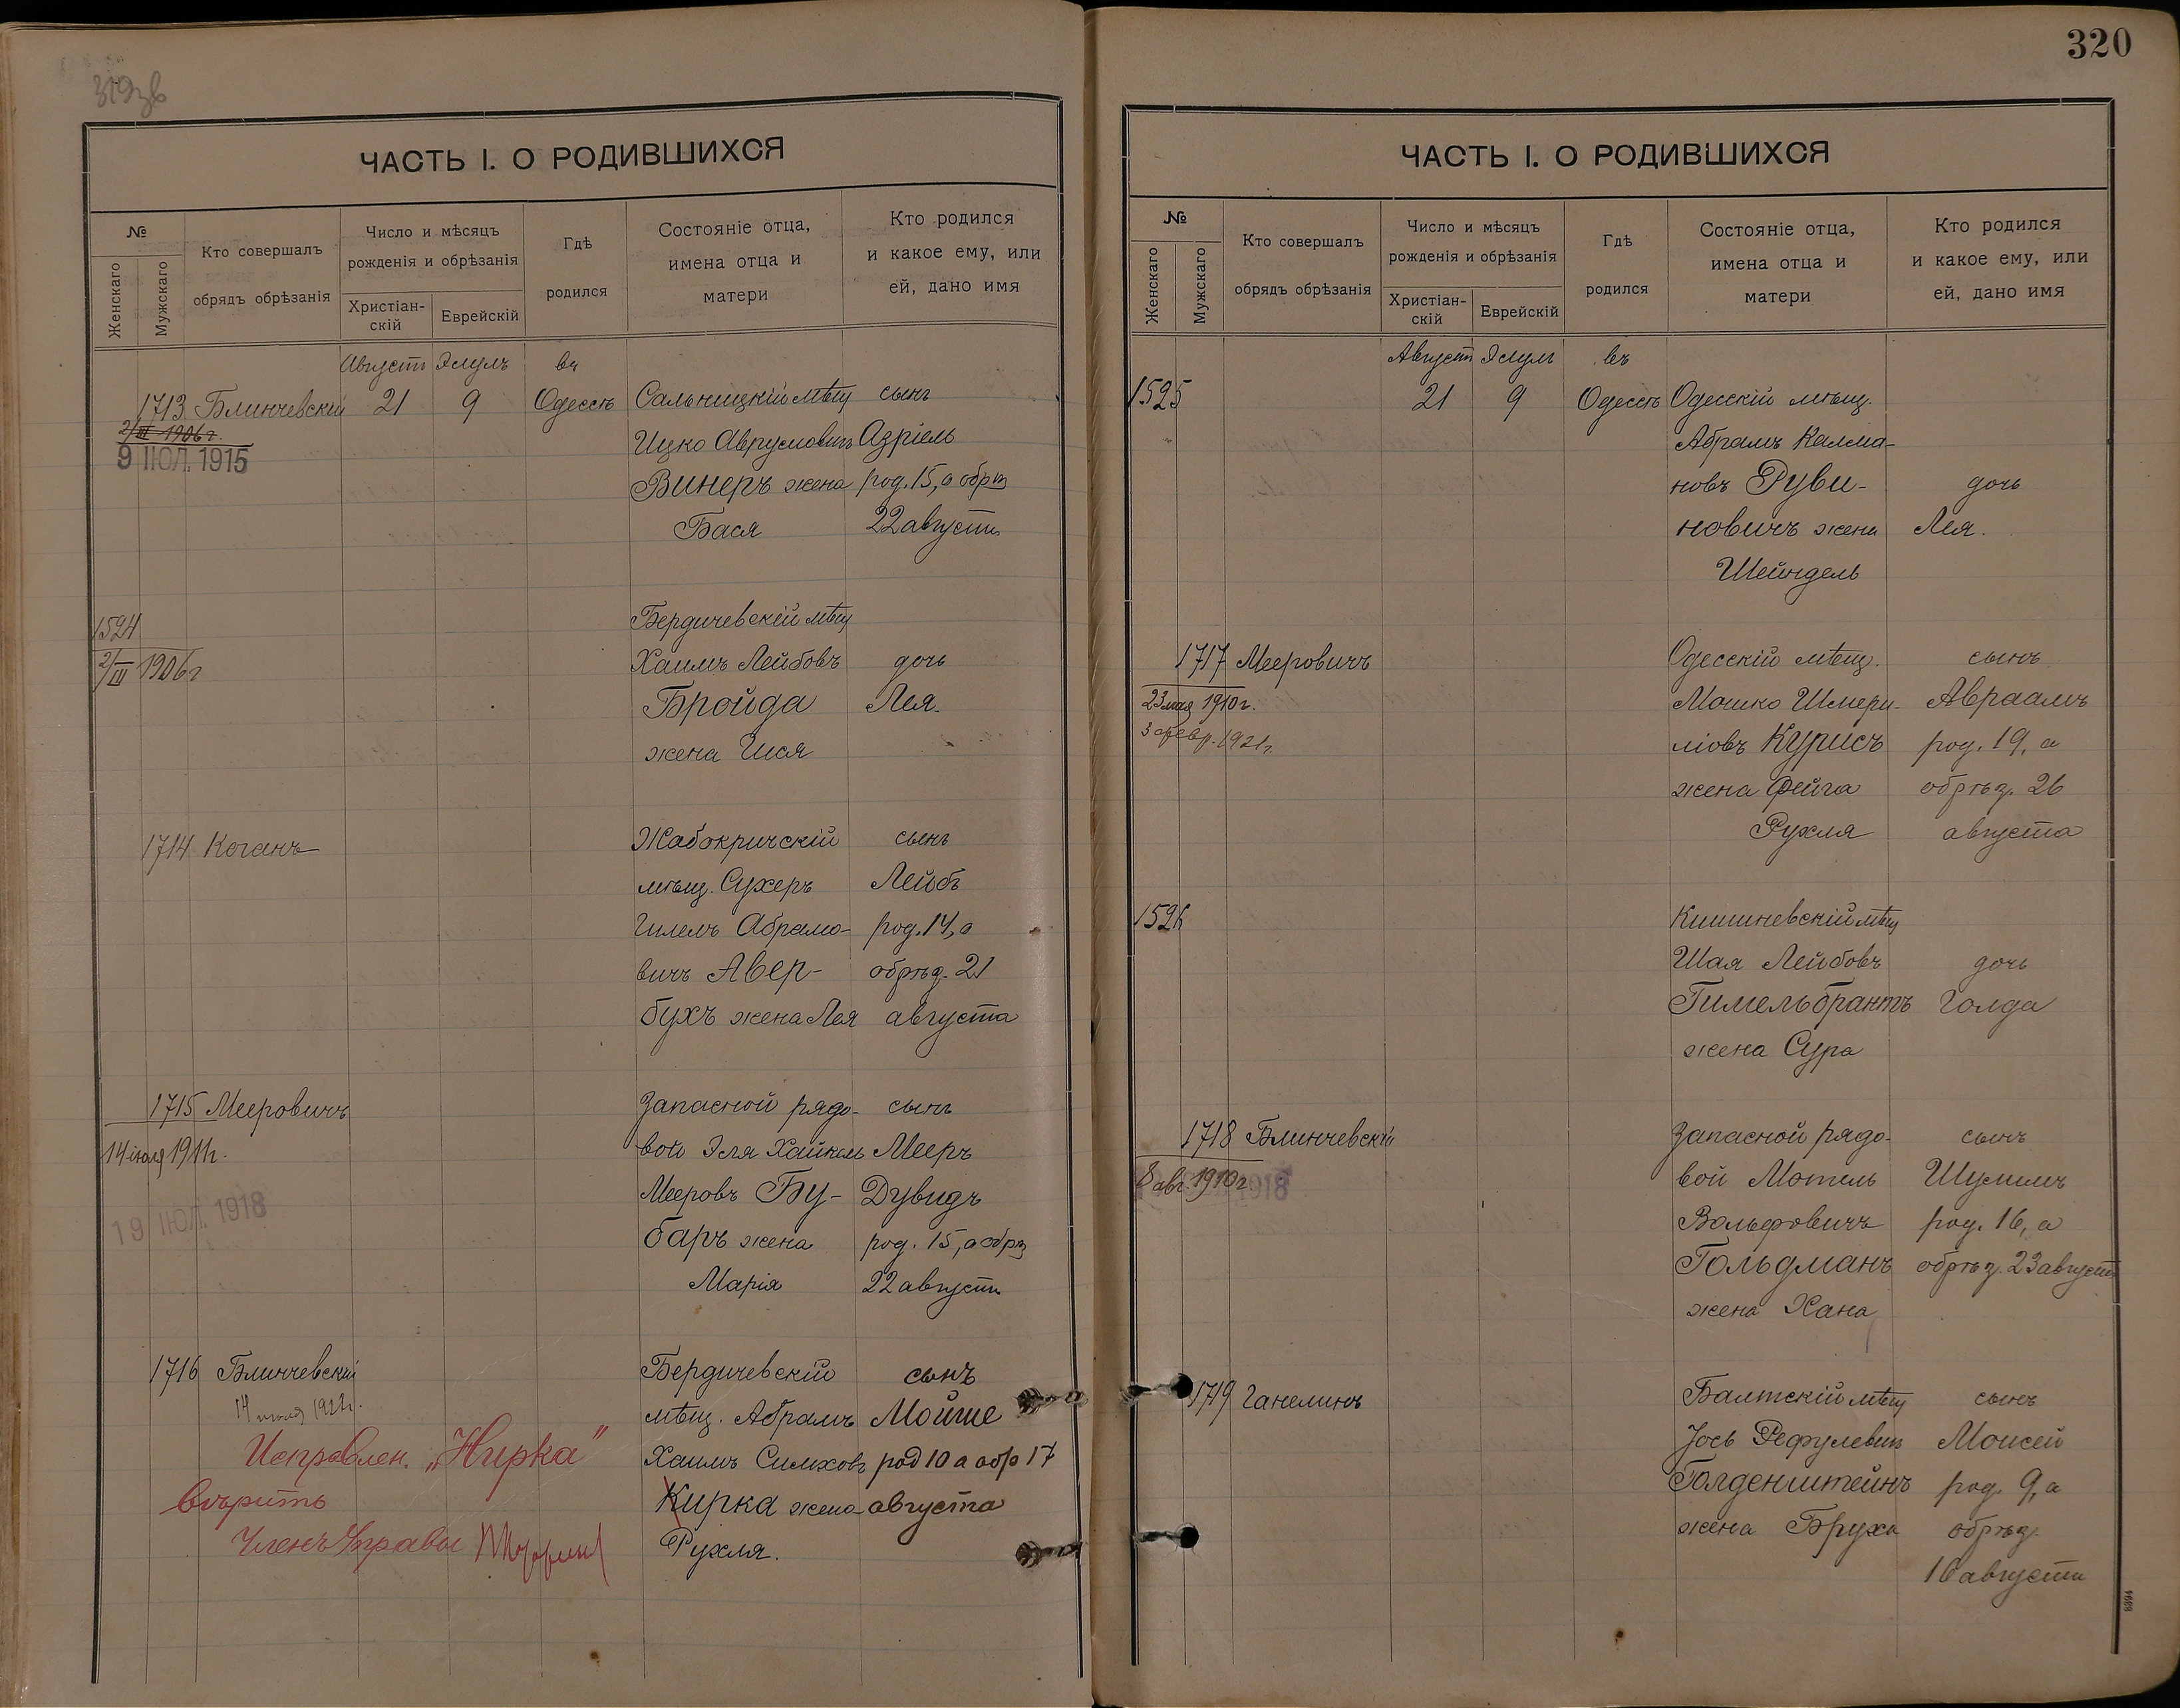 319зв
ЧАСТЬ I. О РОДИВШИХСЯ
№
Женскаго
Мужскаго
Кто совершалъ
обрядъ обрѣзанія
Число и мѣсяцъ
рожденія и обрѣзанія
Христіан-
скій
Еврейскій
Гдѣ
родился
Состояніе отца,
имена отца и
матери
Кто родился
и какое ему, или
ей, дано имя
Августъ Элулъ въ
1713 Блинчевскій 21 9 Одессѣ Сальницкій мѣщ сынъ
2/III 1906 г.
9 ІЮЛ. 1915
Ицко Аврумовичъ Азріель
Винеръ жена род. 15, а обрѣз
Бася 22 августа
1524 Бердичевскій мѣщ
2/III 1906 г Хаимъ Лейбовъ дочь
Бройда Лея.
жена Шая
1714 Коганъ Жабокричскій сынъ
мѣщ. Сухеръ Лейбъ
Гилемъ Абрамо- род. 14, а
вичъ Авер- обрѣз. 21
бухъ жена Лея августа
1715 Мееровичъ Запасной рядо- сынъ
14 іюля 1911 г. вой Эля Хайкель Мееръ
Мееровъ Бу- Дувидъ
19 ІЮЛ. 1918
баръ жена род. 15, а обрѣз
Марія 22 августа
1716 Блинчевскій Бердичевскій сынъ
мѣщ. Абрамъ Мойше
Исправлен. „Нирка" Хаимъ Симховъ род 10 а обр 17
вѣрить Кирка жена августа
Членъ Управы Рухля.
320
ЧАСТЬ I. О РОДИВШИХСЯ
№
Женскаго
Мужскаго
Кто совершалъ
обрядъ обрѣзанія
Число и мѣсяцъ
рожденія и обрѣзанія
Христіан-
скій
Еврейскій
Гдѣ
родился
Состояніе отца,
имена отца и
матери
Кто родился
и какое ему, или
ей, дано имя
Августъ Элулъ въ
1525 21 9 Одессѣ Одесскій мѣщ.
Абрамъ Калма-
новъ Руви- дочь
новичъ жена Лея.
Шейндель
1717 Мееровичъ Одесскій мѣщ. сынъ
23 мая 1910 г. Мошко Шмери- Авраамъ
3 февр. 1921 г. ліовъ Курисъ род. 19, а
жена Фейга обрѣз. 26
Рухля августа
1526 Кишиневскій мѣщ
Шая Лейбовъ дочь
Гимельбрантъ Голда
жена Сура
1718 Блинчевскій Запасной рядо- сынъ
8 авг. 1910 г. 1918 вой Мотель Шулимъ
Вольфовичъ род. 16, а
Гольдманъ обрѣз. 23 августа
жена Хана
1719 Ганелинъ Балтскій мѣщ сынъ
Іось Рефулевичъ Моисей
Голденштейнъ род. 9, а
жена Бруха обрѣз.
16 августа